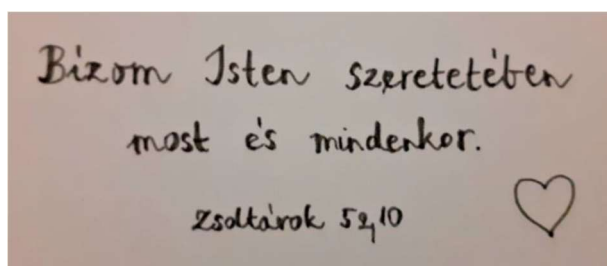 Bizom Isten szeretetében
most és mindenkor.
Zsoltárok 52,10